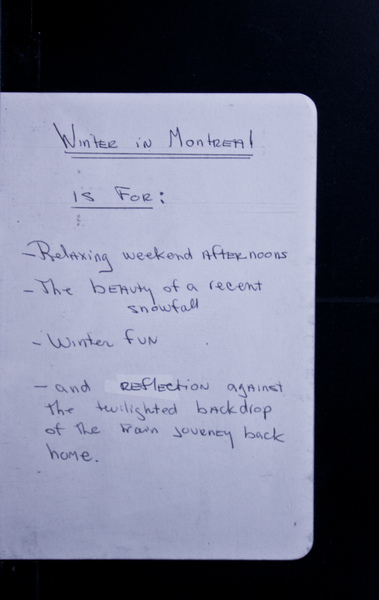 Winter in Montreal
is For:
- Relaxing weekend afternoons
- The beauty of a recent
snowfall
- Winter fun
- and reflection against
the twilighted backdrop
of the train journey back
home.